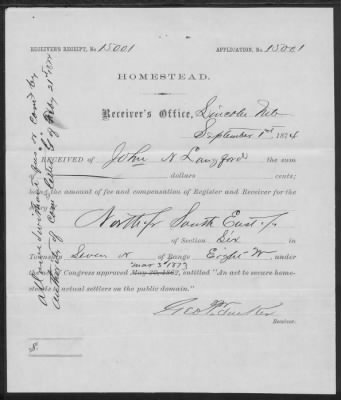 RECEIVER'S RECEIPT, No. 15001 APPLICATION, No. 15001
HOMESTEAD.
Receiver's Office, Lincoln Neb
September 1st, 1874
RECEIVED of John N Langford the sum
of dollars cents;
being the amount of fee and compensation of Register and Receiver for the
North ½ South East ¼
of Section Six in
Township Seven N of Range Eight W, under
mar 3d 1879
the Act of Congress approved May 20, 1862, entitled "An act to secure home-
steads to actual settlers on the public domain."
Geo P Tucker
Receiver.
$
allowed without fees or com's by
authority of com letter G of May 21 1874